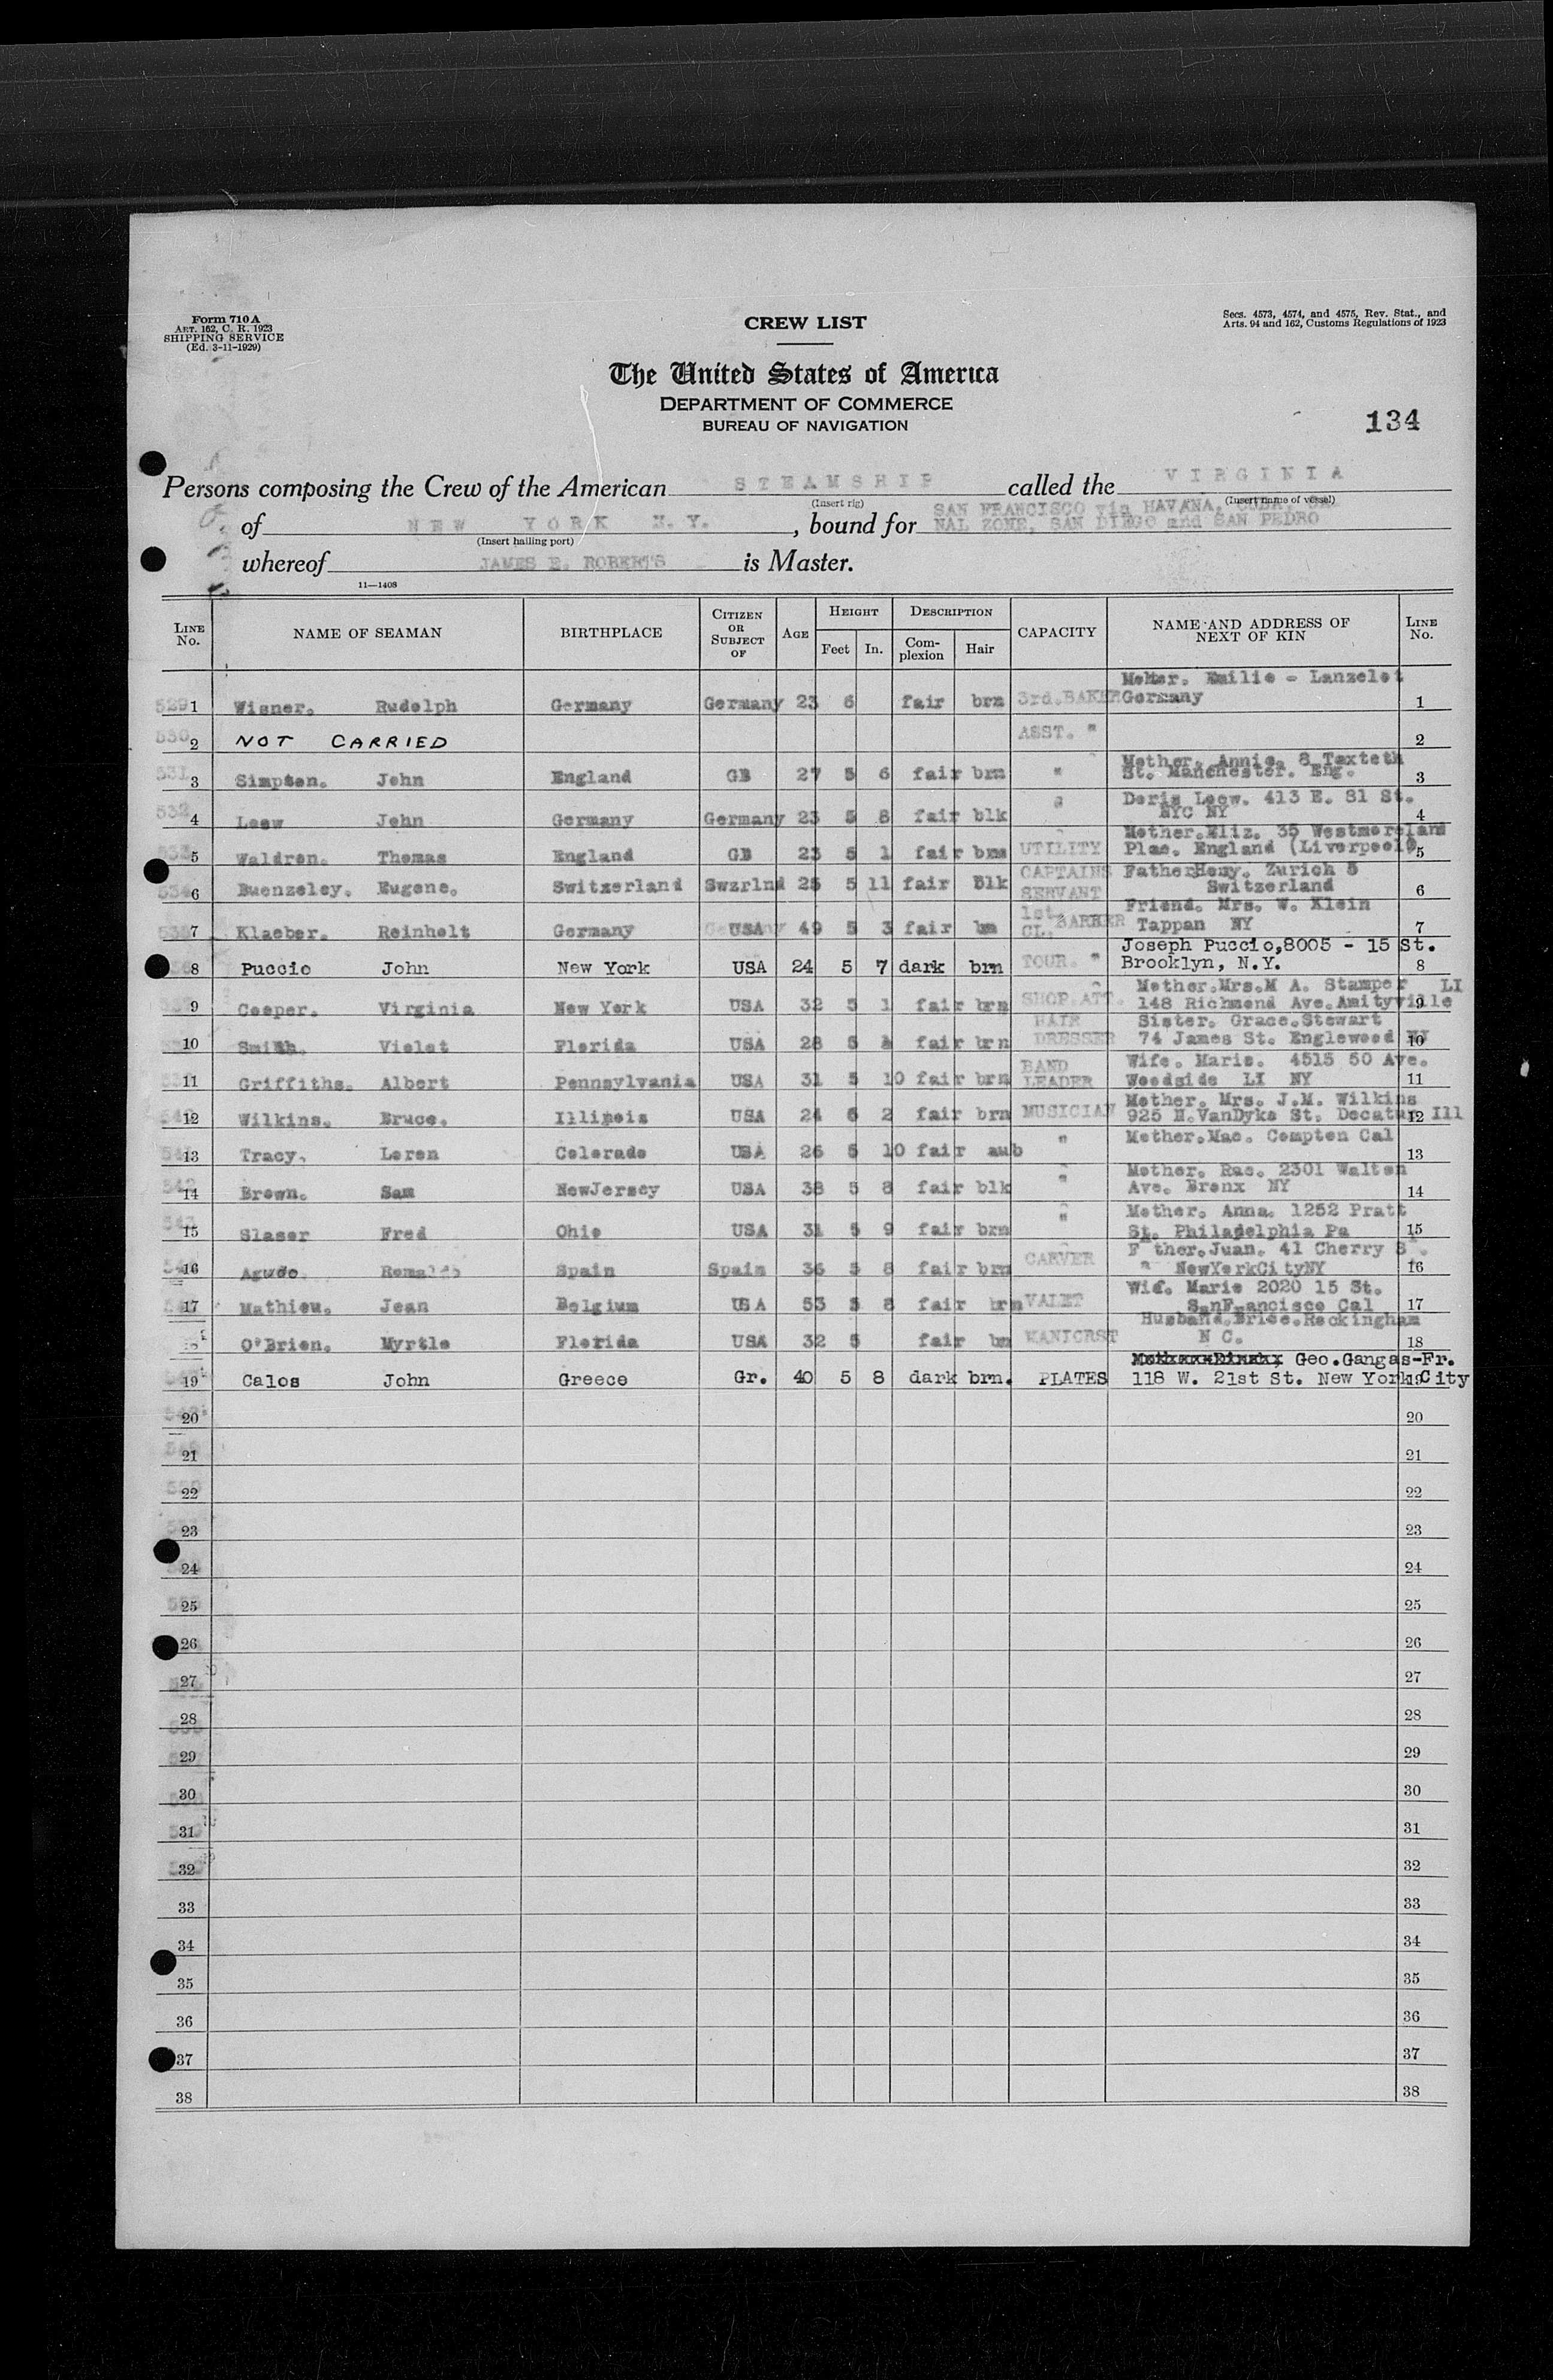 Form 710 A
ART. 162, C. R. 1923
SHIPPING SERVICE
(Ed. 3-11-1929)
CREW LIST
Secs. 4573, 4574, and 4575, Rev. Stat., and
Arts. 94 and 162, Customs Regulations of 1923
The United States of America
DEPARTMENT OF COMMERCE
BUREAU OF NAVIGATION
134
Persons composing the Crew of the American STEAMSHIP called the VIRGINIA
(Insert rig) (Insert name of vessel)
of NEW YORK N.Y. , bound for SAN FRANCISCO via HAVANA, CUBA, CA-
NAL ZONE, SAN DIEGO and SAN PEDRO
(Insert hailing port)
whereof JAMES E. ROBERTS is Master.
11—1408
LINE No. NAME OF SEAMAN BIRTHPLACE CITIZEN OR SUBJECT OF AGE HEIGHT Feet In. DESCRIPTION Complexion Hair CAPACITY NAME AND ADDRESS OF NEXT OF KIN LINE No.
Mother. Emilie - Lanzelet
529 1 Wisner. Rudolph Germany Germany 23 6 fair brn 3rd.BAKER Germany 1
530 2 NOT CARRIED ASST. " 2
Mother. Annie. 8 Texteth
531 3 Simpson. John England GB 27 5 6 fair brn " St. Manchester. Eng. 3
Doris Loew. 413 E. 81 St.
532 4 Loew John Germany Germany 23 5 8 fair blk " NYC NY 4
Mother.Eliz. 35 Westmoreland
533 5 Waldron. Thomas England GB 23 5 1 fair brn UTILITY Plac. England (Liverpool) 5
CAPTAINS Father Heny. Zurich 5
534 6 Buenzeley. Eugene. Switzerland Swzrlnd 25 5 11 fair Blk SERVANT Switzerland 6
1st Friend. Mrs. W. Klein
535 7 Klaeber. Reinholt Germany USA 49 5 3 fair bn CL. BARKER Tappan NY 7
Joseph Puccio,8005 - 15 St.
8 Puccio John New York USA 24 5 7 dark brn TOUR. " Brooklyn, N.Y. 8
Mother.Mrs.M A. Stamper LI
9 Cooper. Virginia New York USA 32 5 1 fair brn SHOP.ATT. 148 Richmond Ave.Amityville 9
HAIR Sister. Grace.Stewart
10 Smith. Violet Florida USA 28 5 fair brn DRESSER 74 James St. Englewood NJ 10
BAND Wife. Marie. 4515 50 Ave.
11 Griffiths. Albert Pennsylvania USA 31 5 10 fair brn LEADER Woodside LI NY 11
Mother. Mrs. J.M. Wilkins
12 Wilkins. Bruce. Illinois USA 24 6 2 fair brn MUSICIAN 925 N.VanDyke St. Decatur Ill 12
13 Tracy. Loren Colorado USA 26 5 10 fair aub " Mother.Mae. Compton Cal 13
Mother. Rae. 2301 Walton
14 Brown. Sam NewJersey USA 38 5 8 fair blk " Ave. Bronx NY 14
Mother. Anna. 1252 Pratt
15 Slaser Fred Ohio USA 31 5 9 fair brn " St. Philadelphia Pa 15
F ther.Juan. 41 Cherry St.
16 Agudo. Romaldo Spain Spain 36 5 8 fair brn CARVER " NewYorkCityNY 16
Wif. Marie 2020 15 St.
17 Mathieu. Jean Belgium USA 53 5 8 fair brn VALET SanFrancisco Cal 17
Husband.Brice.Rockingham
18 O'Brien. Myrtle Florida USA 32 5 fair bn MANICRST N C. 18
Geo.Gangas-Fr.
19 Calos John Greece Gr. 40 5 8 dark brn. PLATES 118 W. 21st St. New York City 19
20 20
21 21
22 22
23 23
24 24
25 25
26 26
27 27
28 28
29 29
30 30
31 31
32 32
33 33
34 34
35 35
36 36
37 37
38 38